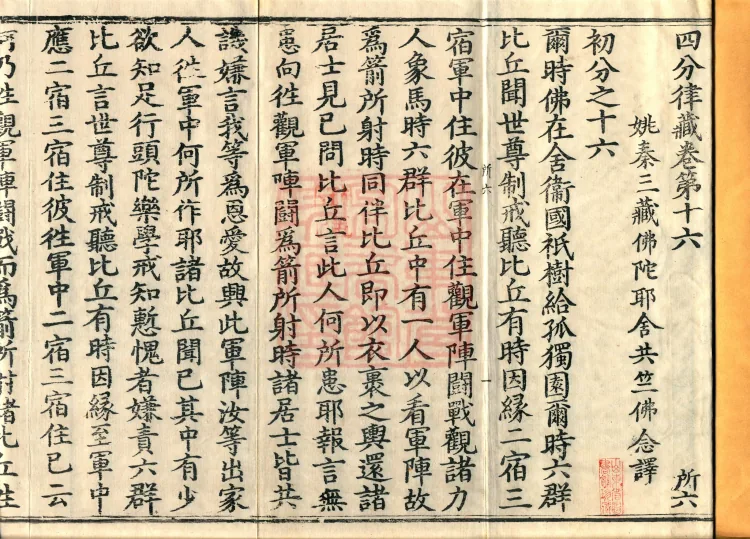 四分律藏卷第十六 所六
姚秦三藏佛陀耶舍共竺佛念譯
初分之十六
爾時佛在舍衛國祇樹給孤獨園爾時六群
比丘聞世尊制戒聽比丘有時因緣二宿三
所六
一
宿軍中住彼在軍中住觀軍陣鬪戰觀諸力
人象馬時六群比丘中有一人以看軍陣故
為箭所射時同伴比丘即以衣裹之輿還諸
居士見已問比丘言此人何所患耶報言無
患向徃觀軍陣鬪為箭所射時諸居士皆共
譏嫌言我等為恩愛故興此軍陣汝等出家
人徃軍中何所作耶諸比丘聞已其中有少
欲知足行頭陀樂學戒知慙愧者嫌責六群
比丘言世尊制戒聽比丘有時因緣至軍中
應二宿三宿住彼徃軍中二宿三宿住已云
何乃徃觀軍陣鬪戰而為箭所射諸比丘徃